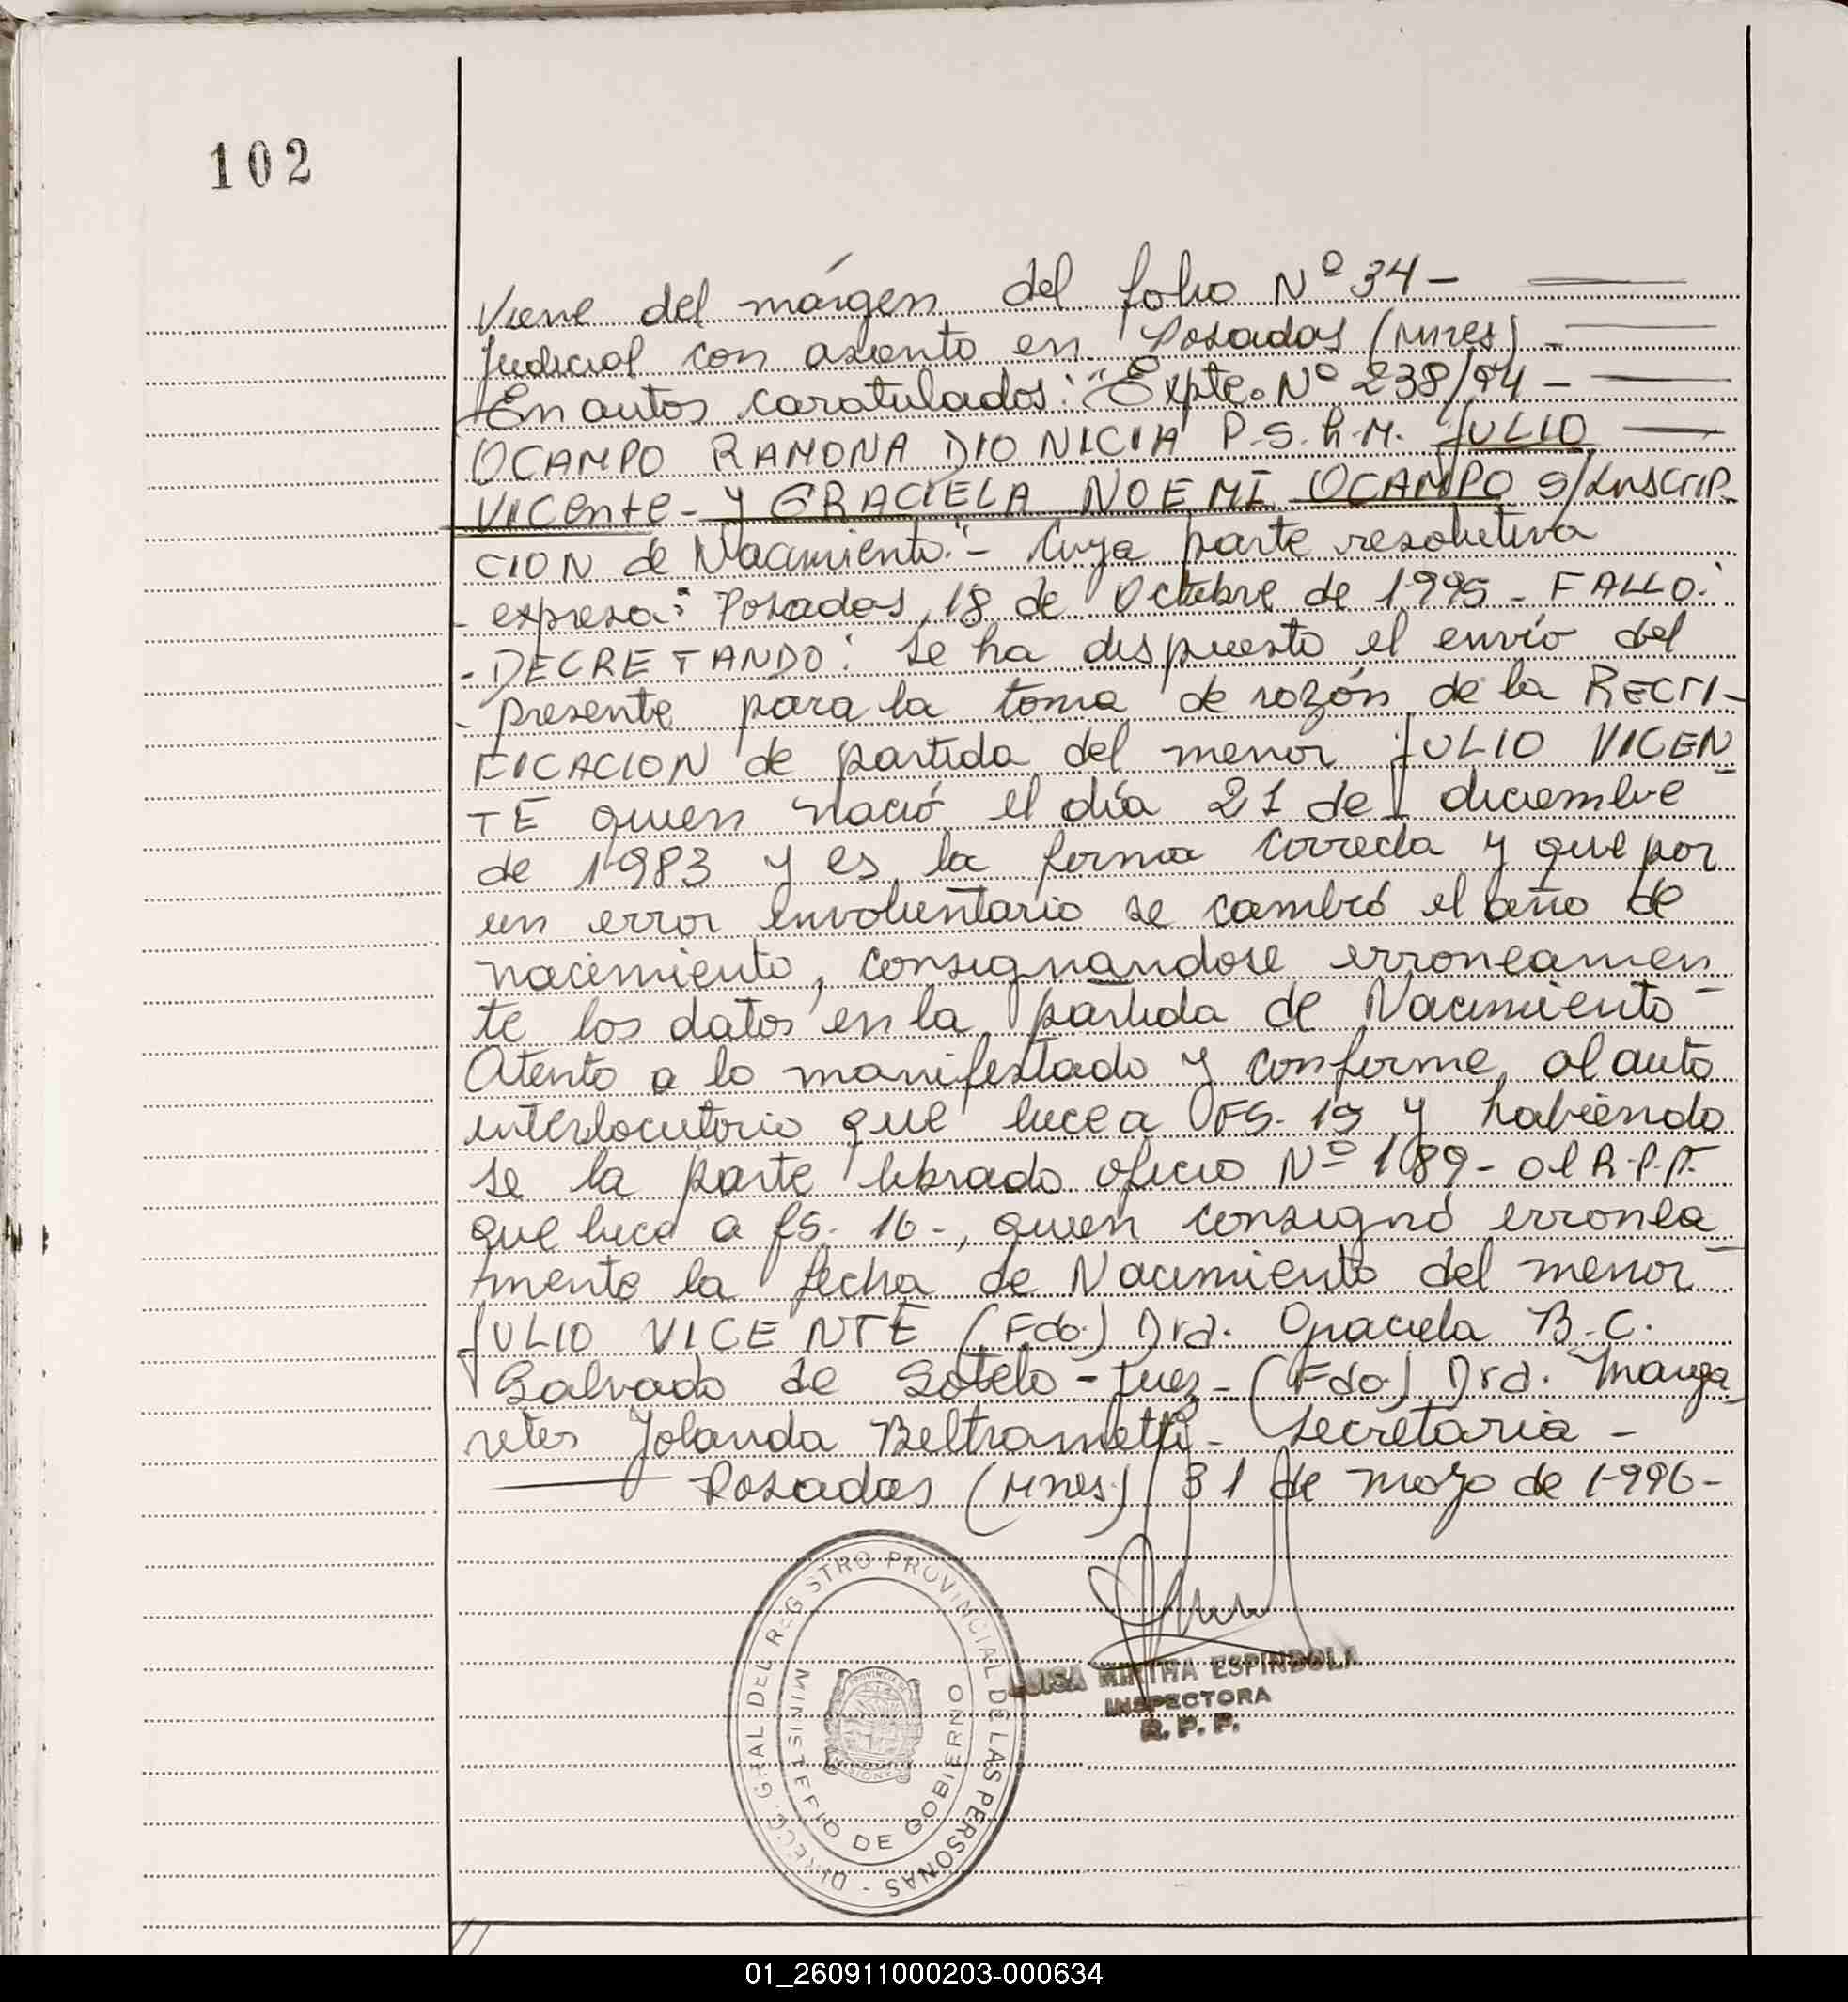 102
Viene del márgen del folio Nº 34 -
Judicial con asiento en Posadas (Mnes) -
En autos caratulados: "Expte. Nº 238/94 -
OCAMPO RAMONA DIONICIA P.S.h.M. JULIO
VICente - y GRACIELA NOEMI OCAMPO S/Inscrip
CION de Nacimiento." - Cuya parte resolutiva
- expresa: Posadas, 18 de Octubre de 1995 - FALLO:
- DECRETANDO: Se ha dispuesto el envío del
- presente para la toma de razón de la RECTI-
FICACION de partida del menor JULIO VICEN
TE quien nació el día 21 de diciembre
de 1983 y es la forma correcta y que por
un error involuntario se cambió el año de
nacimiento, consignandose erroneamen
te los datos en la partida de Nacimiento -
Atento a lo manifestado y conforme al auto
interlocutorio que luce a FS. 19 y habiendo
se la parte librado oficio Nº 189 - al R.P.P.
que luce a fs. 16 -, quien consignó erronea
mente la fecha de Nacimiento del menor
JULIO VICENTE (Fdo.) Dra. Graciela B. C.
Salvado de Sotelo - Juez - (Fdo.) Dra. Marga
retes Yolanda Beltrametti - Secretaria -
Posadas (Mnes.) 31 de mayo de 1996 -
DIRECC. GRAL DEL REGISTRO PROVINCIAL DE LAS PERSONAS -
MINISTERIO DE GOBIERNO
PROVINCIA
MISIONES
LUISA MIRTHA ESPINDOLA
INSPECTORA
R. P. P.
01_260911000203-000634